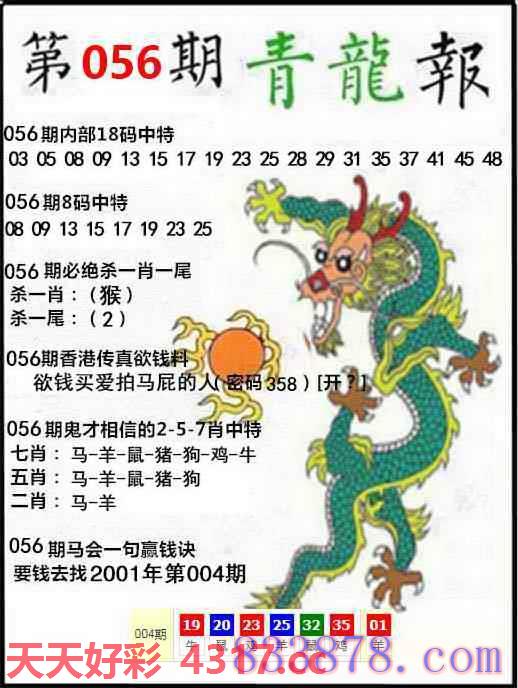 第056期青龍報
056期内部18码中特
03 05 08 09 13 15 17 19 23 25 28 29 31 35 37 41 45 48
056期8码中特
08 09 13 15 17 19 23 25
056期必绝杀一肖一尾
杀一肖：(猴)
杀一尾：(2)
056期香港传真欲钱料
欲钱买爱拍马屁的人(密码358)[开?]
056期鬼才相信的2-5-7肖中特
七肖：马-羊-鼠-猪-狗-鸡-牛
五肖：马-羊-鼠-猪-狗
二肖：马-羊
056期马会一句赢钱诀
要钱去找2001年第004期
004期 19 20 23 25 32 35 01
牛 鼠 鸡 羊 鼠 鸡 羊
天天好彩 4317.cc
838878.com